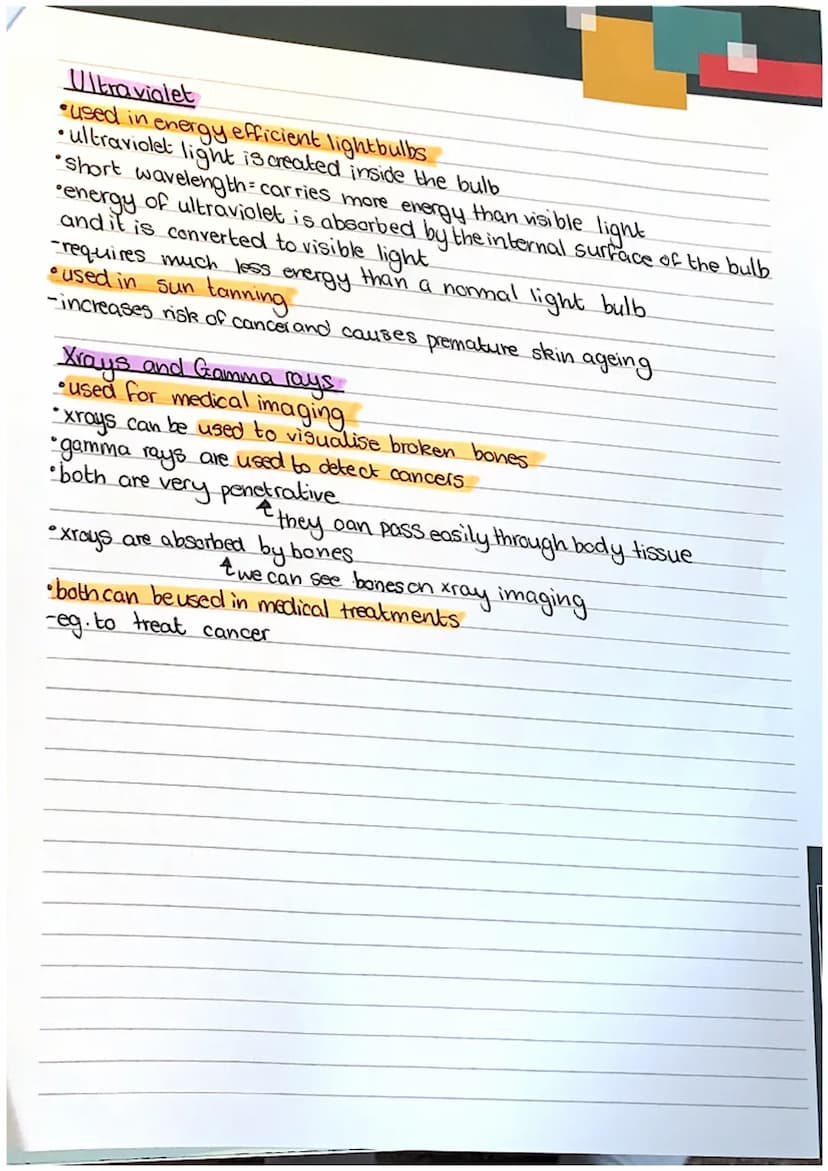 Ultraviolet
•used in energy efficient lightbulbs
•ultraviolet light is created inside the bulb
•short wavelength=carries more energy than visible light
•energy of ultraviolet is absorbed by the internal surface of the bulb
and it is converted to visible light
-requires much less energy than a normal light bulb
•used in sun tanning
-increases risk of cancer and causes premature skin ageing
Xrays and Gamma rays
•used for medical imaging
•xrays can be used to visualise broken bones
•gamma rays are used to detect cancers
•both are very penetrative
↑they can pass easily through body tissue
•xrays are absorbed by bones
↑we can see bones on xray imaging
•both can be used in medical treatments
-eg. to treat cancer